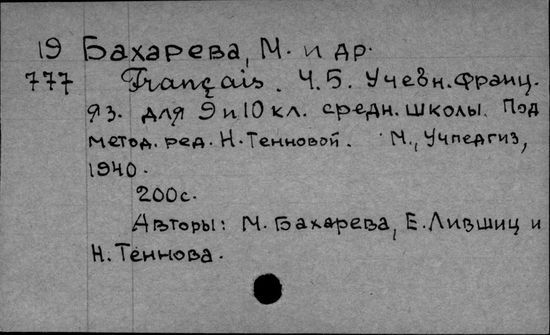 19 Бахарева, М. и др.
777 Français. Ч.5. Учебн. франц.
яз. для 9 и 10 кл. средн. школы. Под
метод. ред. Н. Тенновой. М., Учпедгиз,
1940.
200с.
Авторы: М. Бахарева, Е. Лившиц и
Н. Теннова.